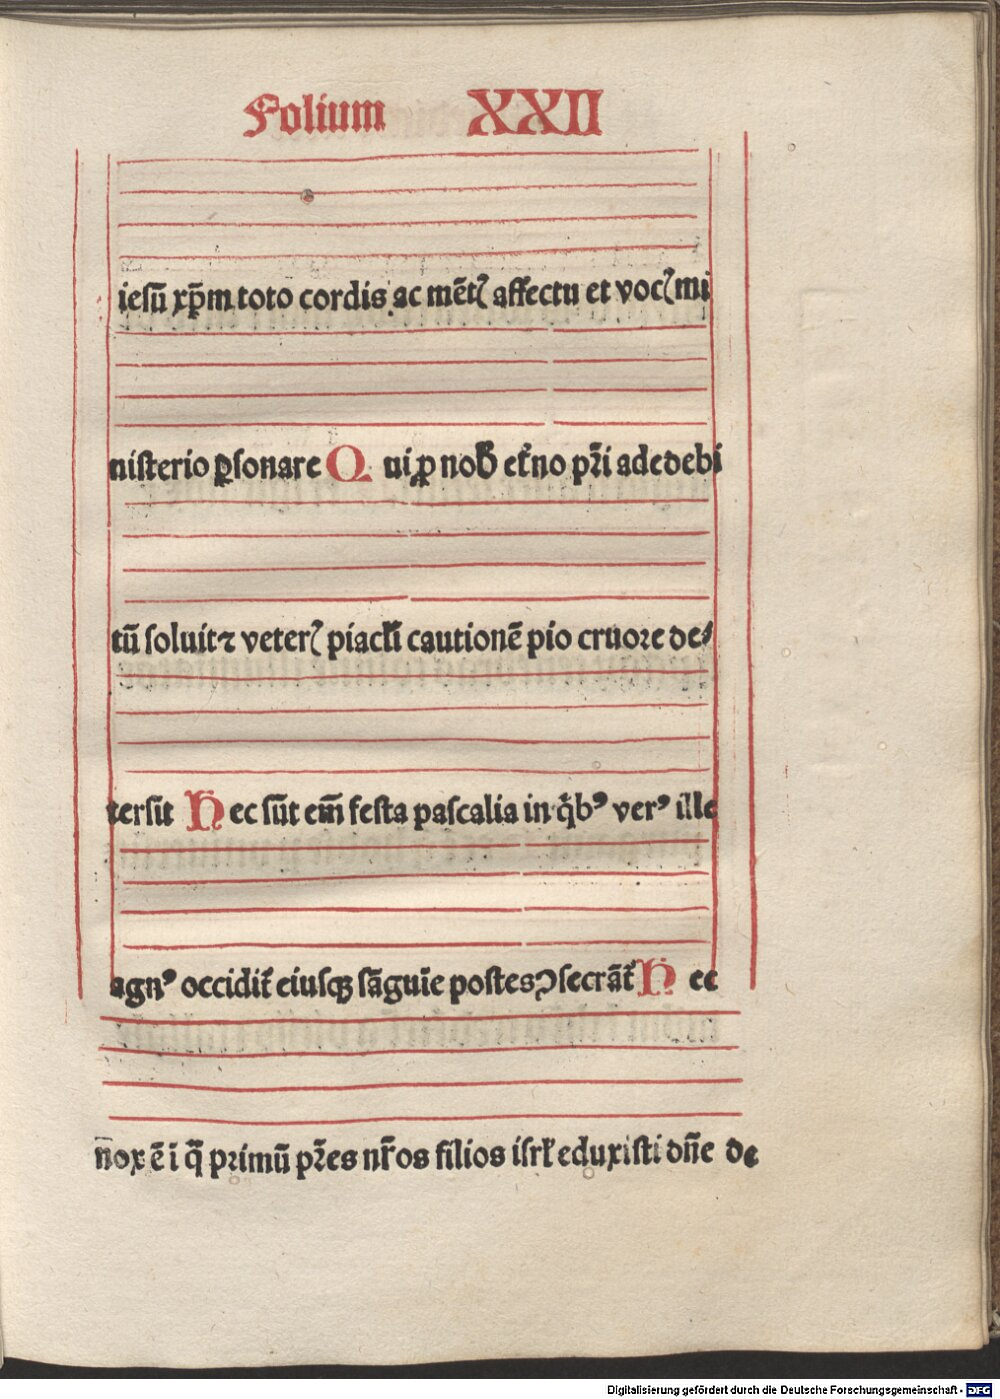 Folium XXII
iesū xp̄m toto cordis ac mētꝭ affectu et vocꝭ mi
nisterio ꝑsonare Qui ꝓ nob̄ et̄no pr̄i ade debi
tū soluit ⁊ veterꝭ piacl̄i cautionē pio cruore de⸗
tersit Hec sūt em̄ festa pascalia in q̇bꝰ verꝰ ille
agnꝰ occidit̄ eiusqꝫ sāguīe postes ꝯsecrāt̄ Hec
n̄ox ē ī q̄ primū pr̄es nr̄os filios isrl̄ eduxisti dn̄e de
Digitalisierung gefördert durch die Deutsche Forschungsgemeinschaft - DFG